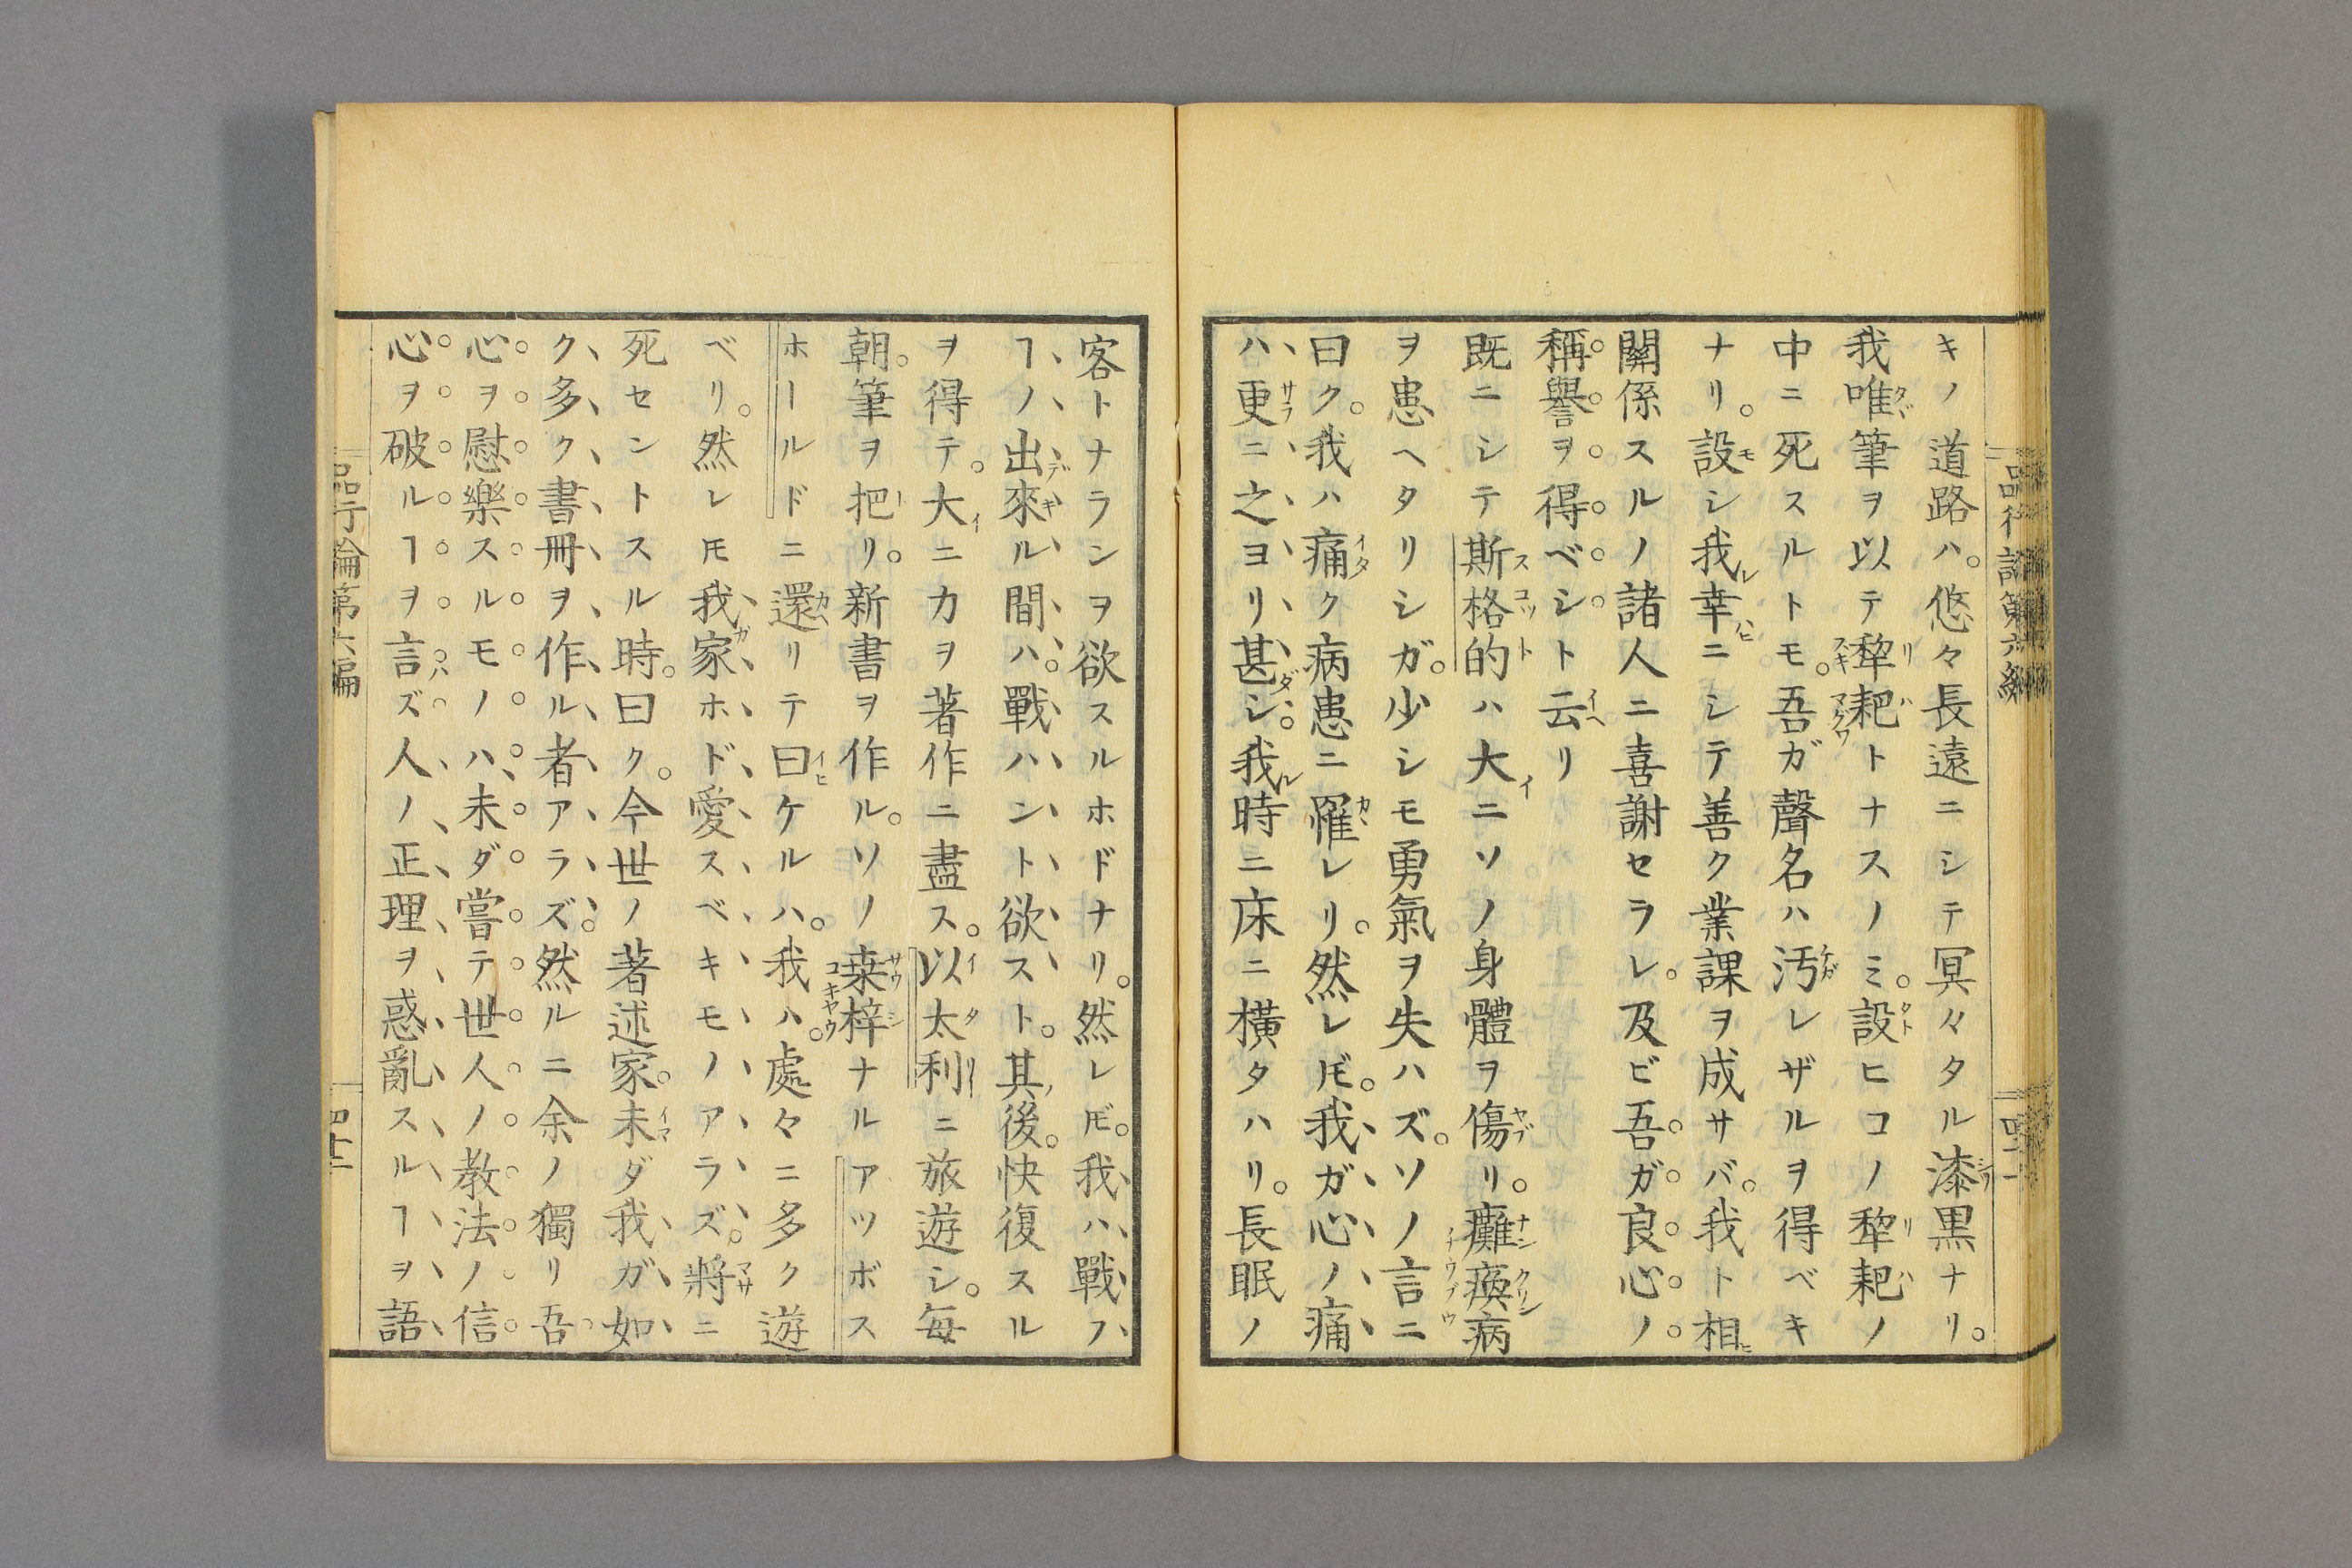 品行論第六編
キノ道路ハ。悠々長遠ニシテ冥々タル漆黒ナリ。
我唯筆ヲ以テ犂耙トナスノミ。設ヒコノ犂耙ノ
中ニ死スルトモ。吾ガ聲名ハ汚レザルヲ得ベキ
ナリ。設シ我幸ニシテ善ク業課ヲ成サバ。我ト相
關係スルノ諸人ニ喜謝セラレ。及ビ吾ガ良心ノ
稱譽ヲ得ベシト云リ
既ニシテ斯格的ハ大ニソノ身體ヲ傷リ。癱瘓病
ヲ患ヘタリシガ。少シモ勇氣ヲ失ハズ。ソノ言ニ
曰ク。我ハ痛ク病患ニ罹レリ。然レ𪜈。我ガ心ノ痛
ハ更ニ之ヨリ甚シ。我時ニ床ニ橫タハリ。長眠ノ
客トナランヲ欲スルホドナリ。然レ𪜈。我ハ戰フ
ヿノ出來ル間ハ。戰ハント欲スト。其後。快復スル
ヲ得テ。大ニ力ヲ著作ニ盡ス。以太利ニ旅遊シ。每
朝筆ヲ把リ。新書ヲ作ル。ソノ桒梓ナルアツボス
ホールドニ還リテ曰ケルハ。我ハ。處々ニ多ク遊
ベリ。然レ𪜈我家ホド愛スベキモノアラズ。將ニ
死セントスル時。曰ク。今世ノ著述家。未ダ我ガ如
ク多ク書冊ヲ作ル者アラズ。然ルニ余ノ獨リ吾
心ヲ慰樂スルモノハ、未ダ嘗テ世人ノ教法ノ信
心ヲ破ルヿヲ言ズ人ノ正理ヲ惑亂スルヿヲ語
品行論第六編
四十二